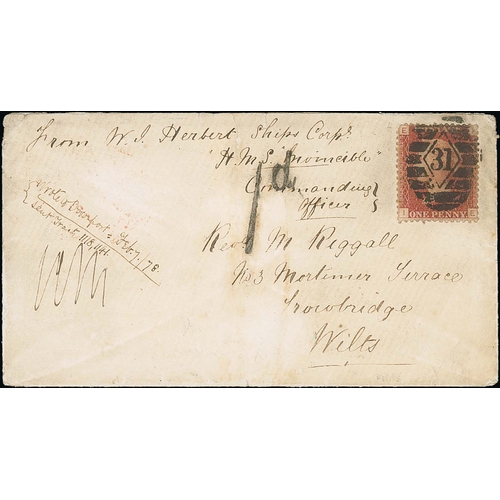 From W. J. Herbert Ships Corpl.
"H.M.S. Invincible"
Commanding
Officer
1d
Revd M Riggall
No 3 Mortimer Terrace
Trowbridge
Wilts
E I
31
I E
ONE PENNY